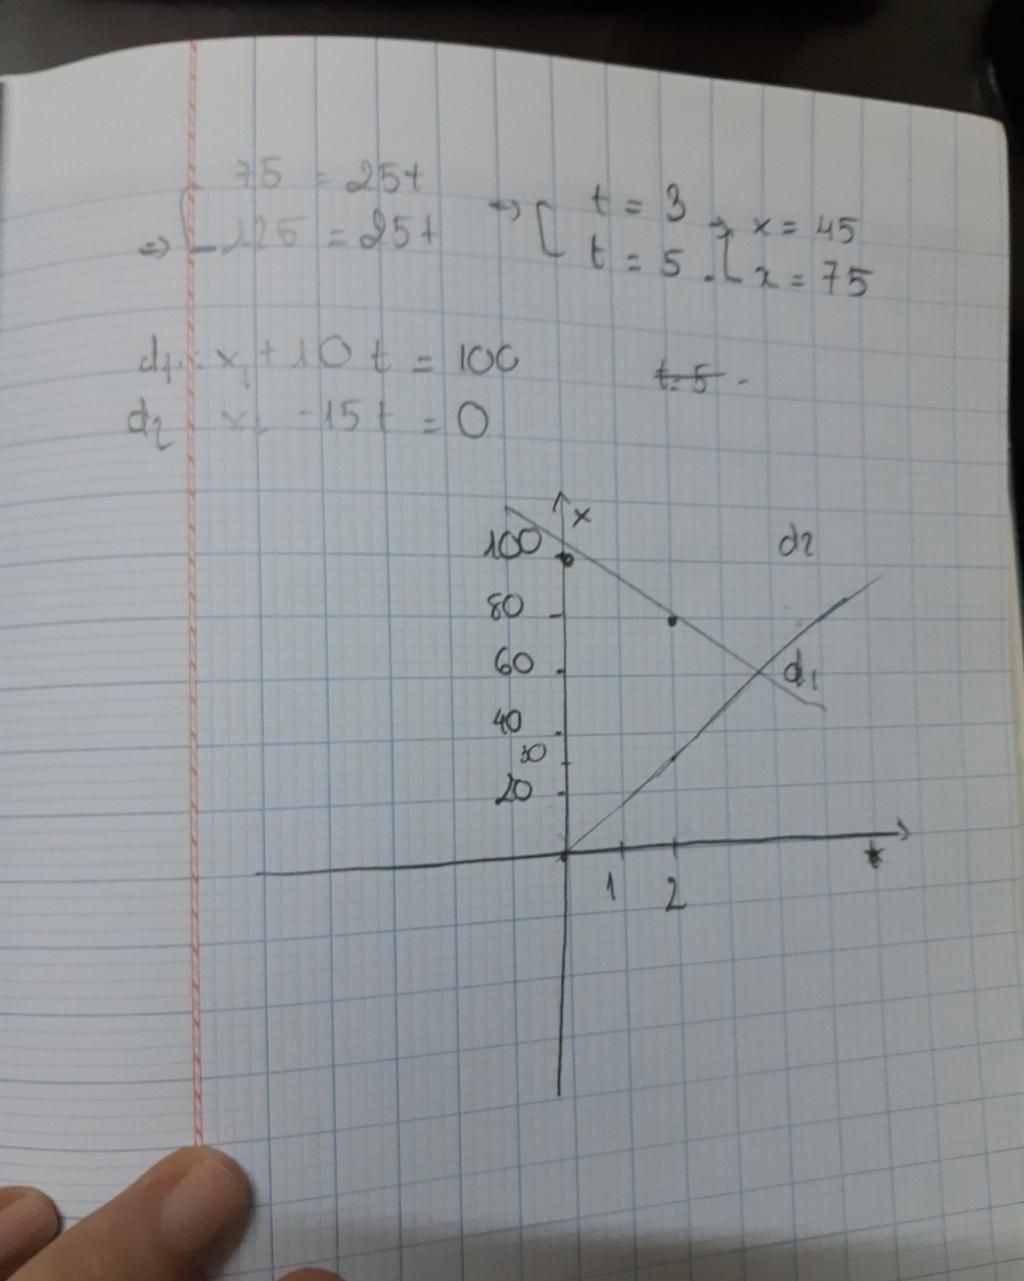 75 = 25t
⇒ [ -125 = 25t ⇒ [ t = 3
t = 5 . ⇒ [ x = 45
x = 75
d1 : x1 + 10 t = 100
t = 5 -
d2 x2 - 15 t = 0
x
100
d2
80
60
d1
40
30
20
t
1 2